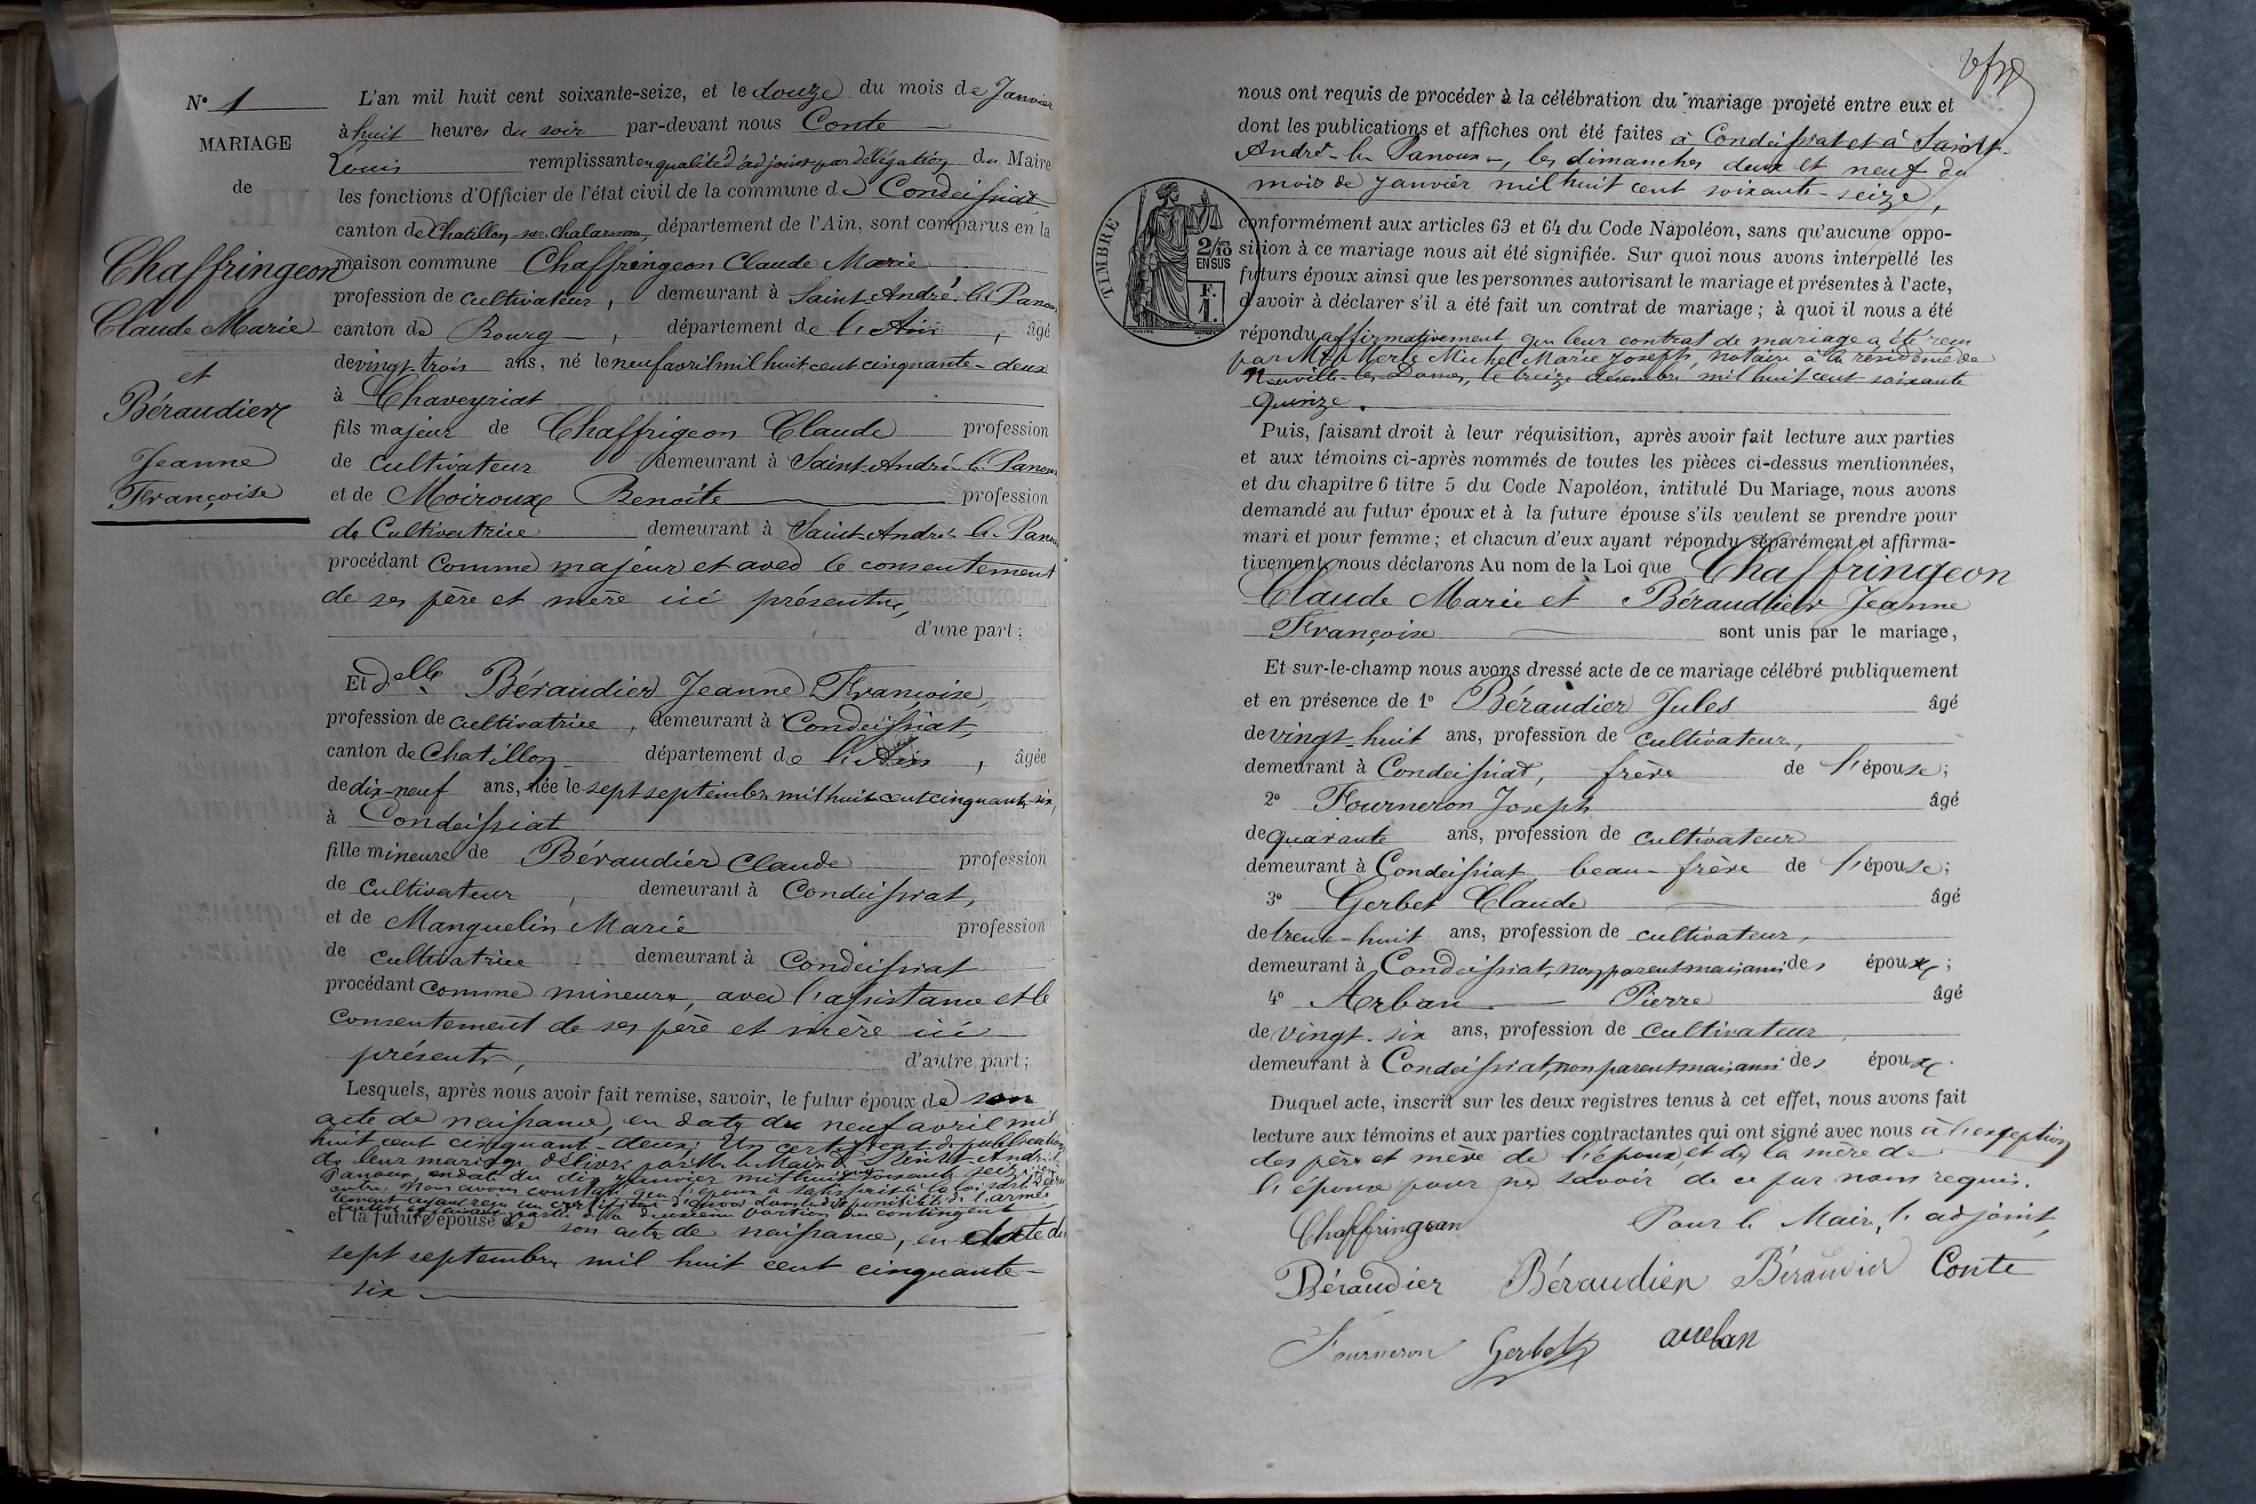 N° 1
MARIAGE
de
Chaffringeon
Claude Marie
et
Béraudier
Jeanne
Françoise
L'an mil huit cent soixante-seize, et le douze du mois de Janvier
à huit heures du soir par-devant nous Conte
Louis remplissant en qualité d'adjoint par délégation du Maire
les fonctions d'Officier de l'état civil de la commune de Condeissiat
canton de Chatillon-sur-chalaronne, département de l'Ain, sont comparus en la
maison commune Chaffringeon Claude Marie
profession de cultivateur, demeurant à Saint-André-le-Panoux
canton de Bourg, département de l'Ain, âgé
de vingt-trois ans, né le neuf avril mil huit cent cinquante-deux
à Chaveyriat
fils majeur de Chaffrigeon Claude profession
de cultivateur demeurant à Saint-André-le-Panoux
et de Moiroux Benoîte profession
de Cultivatrice demeurant à Saint-André-le-Panoux
procédant comme majeur et avec le consentement
de ses père et mère ici présents,
d'une part;
Et delle Béraudier Jeanne Françoise,
profession de cultivatrice, demeurant à Condeissiat,
canton de Chatillon département de l'Ain, âgée
de dix-neuf ans, née le sept septembre mil huit cent cinquante-six,
à Condeissiat
fille mineure de Béraudier Claude profession
de cultivateur, demeurant à Condeissiat,
et de Manguelin Marie profession
de cultivatrice demeurant à Condeissiat
procédant comme mineure, avec l'assistance et le
consentement de ses père et mère ici
présents, d'autre part;
Lesquels, après nous avoir fait remise, savoir, le futur époux de son
acte de naissance, en date du neuf avril mil
huit cent cinquante-deux; Un certificat de publication
de leur mariage délivré par Mr le Maire de Saint-André-le-
Panoux, en date du dix janvier mil huit cent soixante seize
Nous avons constaté que l'époux a satisfait à la loi sur le recru
tement ayant reçu un certificat d'envoi dans la disponibilité de l'armée
de la deuxième portion du contingent
et la future épouse de son acte de naissance, en date du
sept septembre mil huit cent cinquante-
six
nous ont requis de procéder à la célébration du mariage projeté entre eux et
dont les publications et affiches ont été faites à Condeissiat et à Saint-
André-le-Panoux, les dimanches deux et neuf du
mois de Janvier mil huit cent soixante-seize,
TIMBRE
2/10
EN SUS
F.
1.
conformément aux articles 63 et 64 du Code Napoléon, sans qu'aucune oppo-
sition à ce mariage nous ait été signifiée. Sur quoi nous avons interpellé les
futurs époux ainsi que les personnes autorisant le mariage et présentes à l'acte,
d'avoir à déclarer s'il a été fait un contrat de mariage; à quoi il nous a été
répondu affirmativement que leur contrat de mariage a été reçu
par Me Merle Michel Marie Joseph, notaire à la résidence de
Neuville-les-Dames, le treize décembre mil huit cent soixante
quinze.
Puis, faisant droit à leur réquisition, après avoir fait lecture aux parties
et aux témoins ci-après nommés de toutes les pièces ci-dessus mentionnées,
et du chapitre 6 titre 5 du Code Napoléon, intitulé Du Mariage, nous avons
demandé au futur époux et à la future épouse s'ils veulent se prendre pour
mari et pour femme; et chacun d'eux ayant répondu séparément et affirma-
tivement, nous déclarons Au nom de la Loi que Chaffringeon
Claude Marie et Béraudier Jeanne
Françoise sont unis par le mariage,
Et sur-le-champ nous avons dressé acte de ce mariage célébré publiquement
et en présence de 1° Béraudier Jules âgé
de vingt-huit ans, profession de cultivateur,
demeurant à Condeissiat, frère de l'épouse;
2° Fourneron Joseph âgé
de quarante ans, profession de cultivateur
demeurant à Condeissiat beau-frère de l'épouse;
3° Gerbet Claude âgé
de trente-huit ans, profession de cultivateur,
demeurant à Condeissiat, non parent mais ami des époux;
4° Arban Pierre âgé
de vingt-six ans, profession de cultivateur,
demeurant à Condeissiat, non parent mais ami des époux.
Duquel acte, inscrit sur les deux registres tenus à cet effet, nous avons fait
lecture aux témoins et aux parties contractantes qui ont signé avec nous à l'exception
des père et mère de l'époux, et de la mère de
l'épouse pour ne savoir de ce par nous requis.
Chaffringeon Pour le Maire, l'adjoint,
Béraudier Béraudier Béraudier Conte
Fourneron Gerbet arban